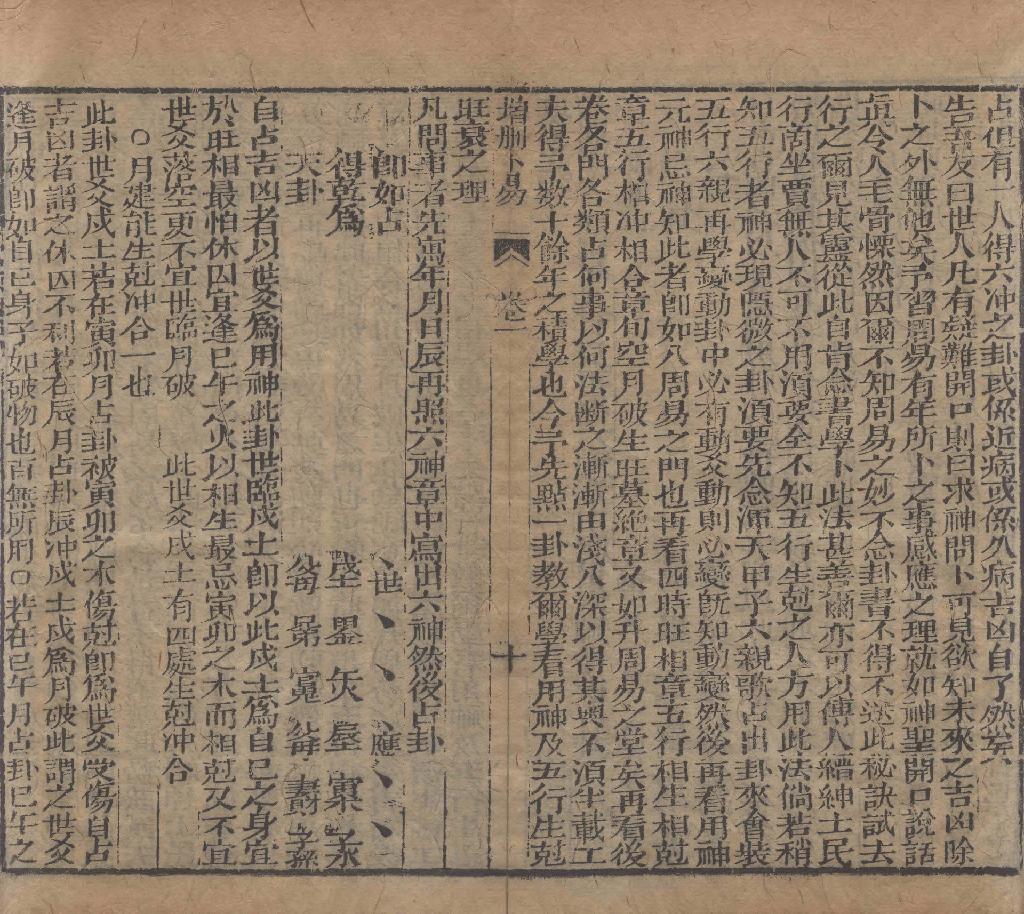 占但有一人得六冲之卦或係近病或係久病吉凶自了然矣
告吾友曰世人凡有疑難開口則曰求神問卜可見欲知未來之吉凶除
卜之外無他矣予習周易有年所卜之事感應之理就如神聖開口說話
眞令人毛骨悚然因爾不知周易之妙不念卦書不得不送此秘訣試去
行之爾見其靈從此自肯念書學卜此法甚善爾亦可以傳人縉紳士民
行商坐賈無人不可不用須要全不知五行生尅之人方用此法倘若稍
知五行者神必現隱微之卦須要先念渾天甲子六親歌占出卦來會裝
五行六親再學變動卦中必有動爻動則必變旣知動變然後再看用神
元神忌神知此者卽如入周易之門也再看四時旺相章五行相生相尅
章五行相冲相合章旬空月破生旺墓絕章又如升周易之堂矣再看後
卷各門各類占何事以何法斷之漸漸由淺入深以得其奧不須半載工
夫得予數十餘年之積學也今予先點一卦教爾學看用神及五行生尅
增刪卜易 卷一 十
旺衰之理
凡問事者先寫年月日辰再照六神章中寫出六神然後占卦
卽如占 世 應
得乾爲
天卦
自占吉凶者以世爻爲用神此卦世臨戌土卽以此戌土爲自己之身宜
於旺相最怕休囚宜逢巳午之火以相生最忌寅卯之木而相尅又不宜
世爻落空更不宜世臨月破 此世爻戌土有四處生尅冲合
○月建能生尅冲合一也
此卦世爻戌土若在寅卯月占卦被寅卯之木傷尅卽爲世爻受傷自占
吉凶者謂之休囚不利若在辰月占卦辰冲戌土戌爲月破此謂之世爻
逢月破卽如自己身子如破物也百無所用○若在巳午月占卦巳午之